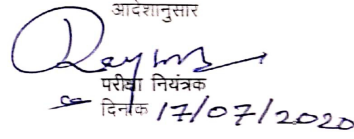 आदेशानुसार
परीक्षा नियंत्रक
दिनांक 17/07/2020